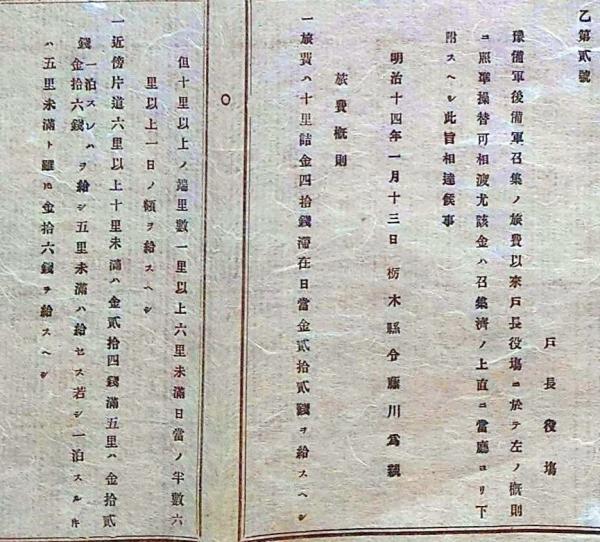 乙第貳號
戸長役塲
豫備軍後備軍召集ノ旅費以來戸長役塲ニ於テ左ノ概則
ニ照準操替可相渡尤該金ハ召集濟ノ上直ニ當廳ヨリ下
附スヘシ此旨相達候事
明治十四年一月十三日 栃木縣令藤川爲親
旅費概則
一旅費ハ十里詰金四拾錢滯在日當金貳拾貳錢ヲ給スヘシ
○
但十里以上ノ端里數一里以上六里未滿日當ノ半數六
里以上一日ノ額ヲ給スヘシ
一近傍片道六里以上十里未滿ハ金貳拾四錢滿五里ハ金拾貳
錢一泊スレハ金拾六錢ヲ給シ五里未滿ハ給セス若シ一泊スル片
ハ五里未滿ト雖𪜈金拾六錢ヲ給スヘシ